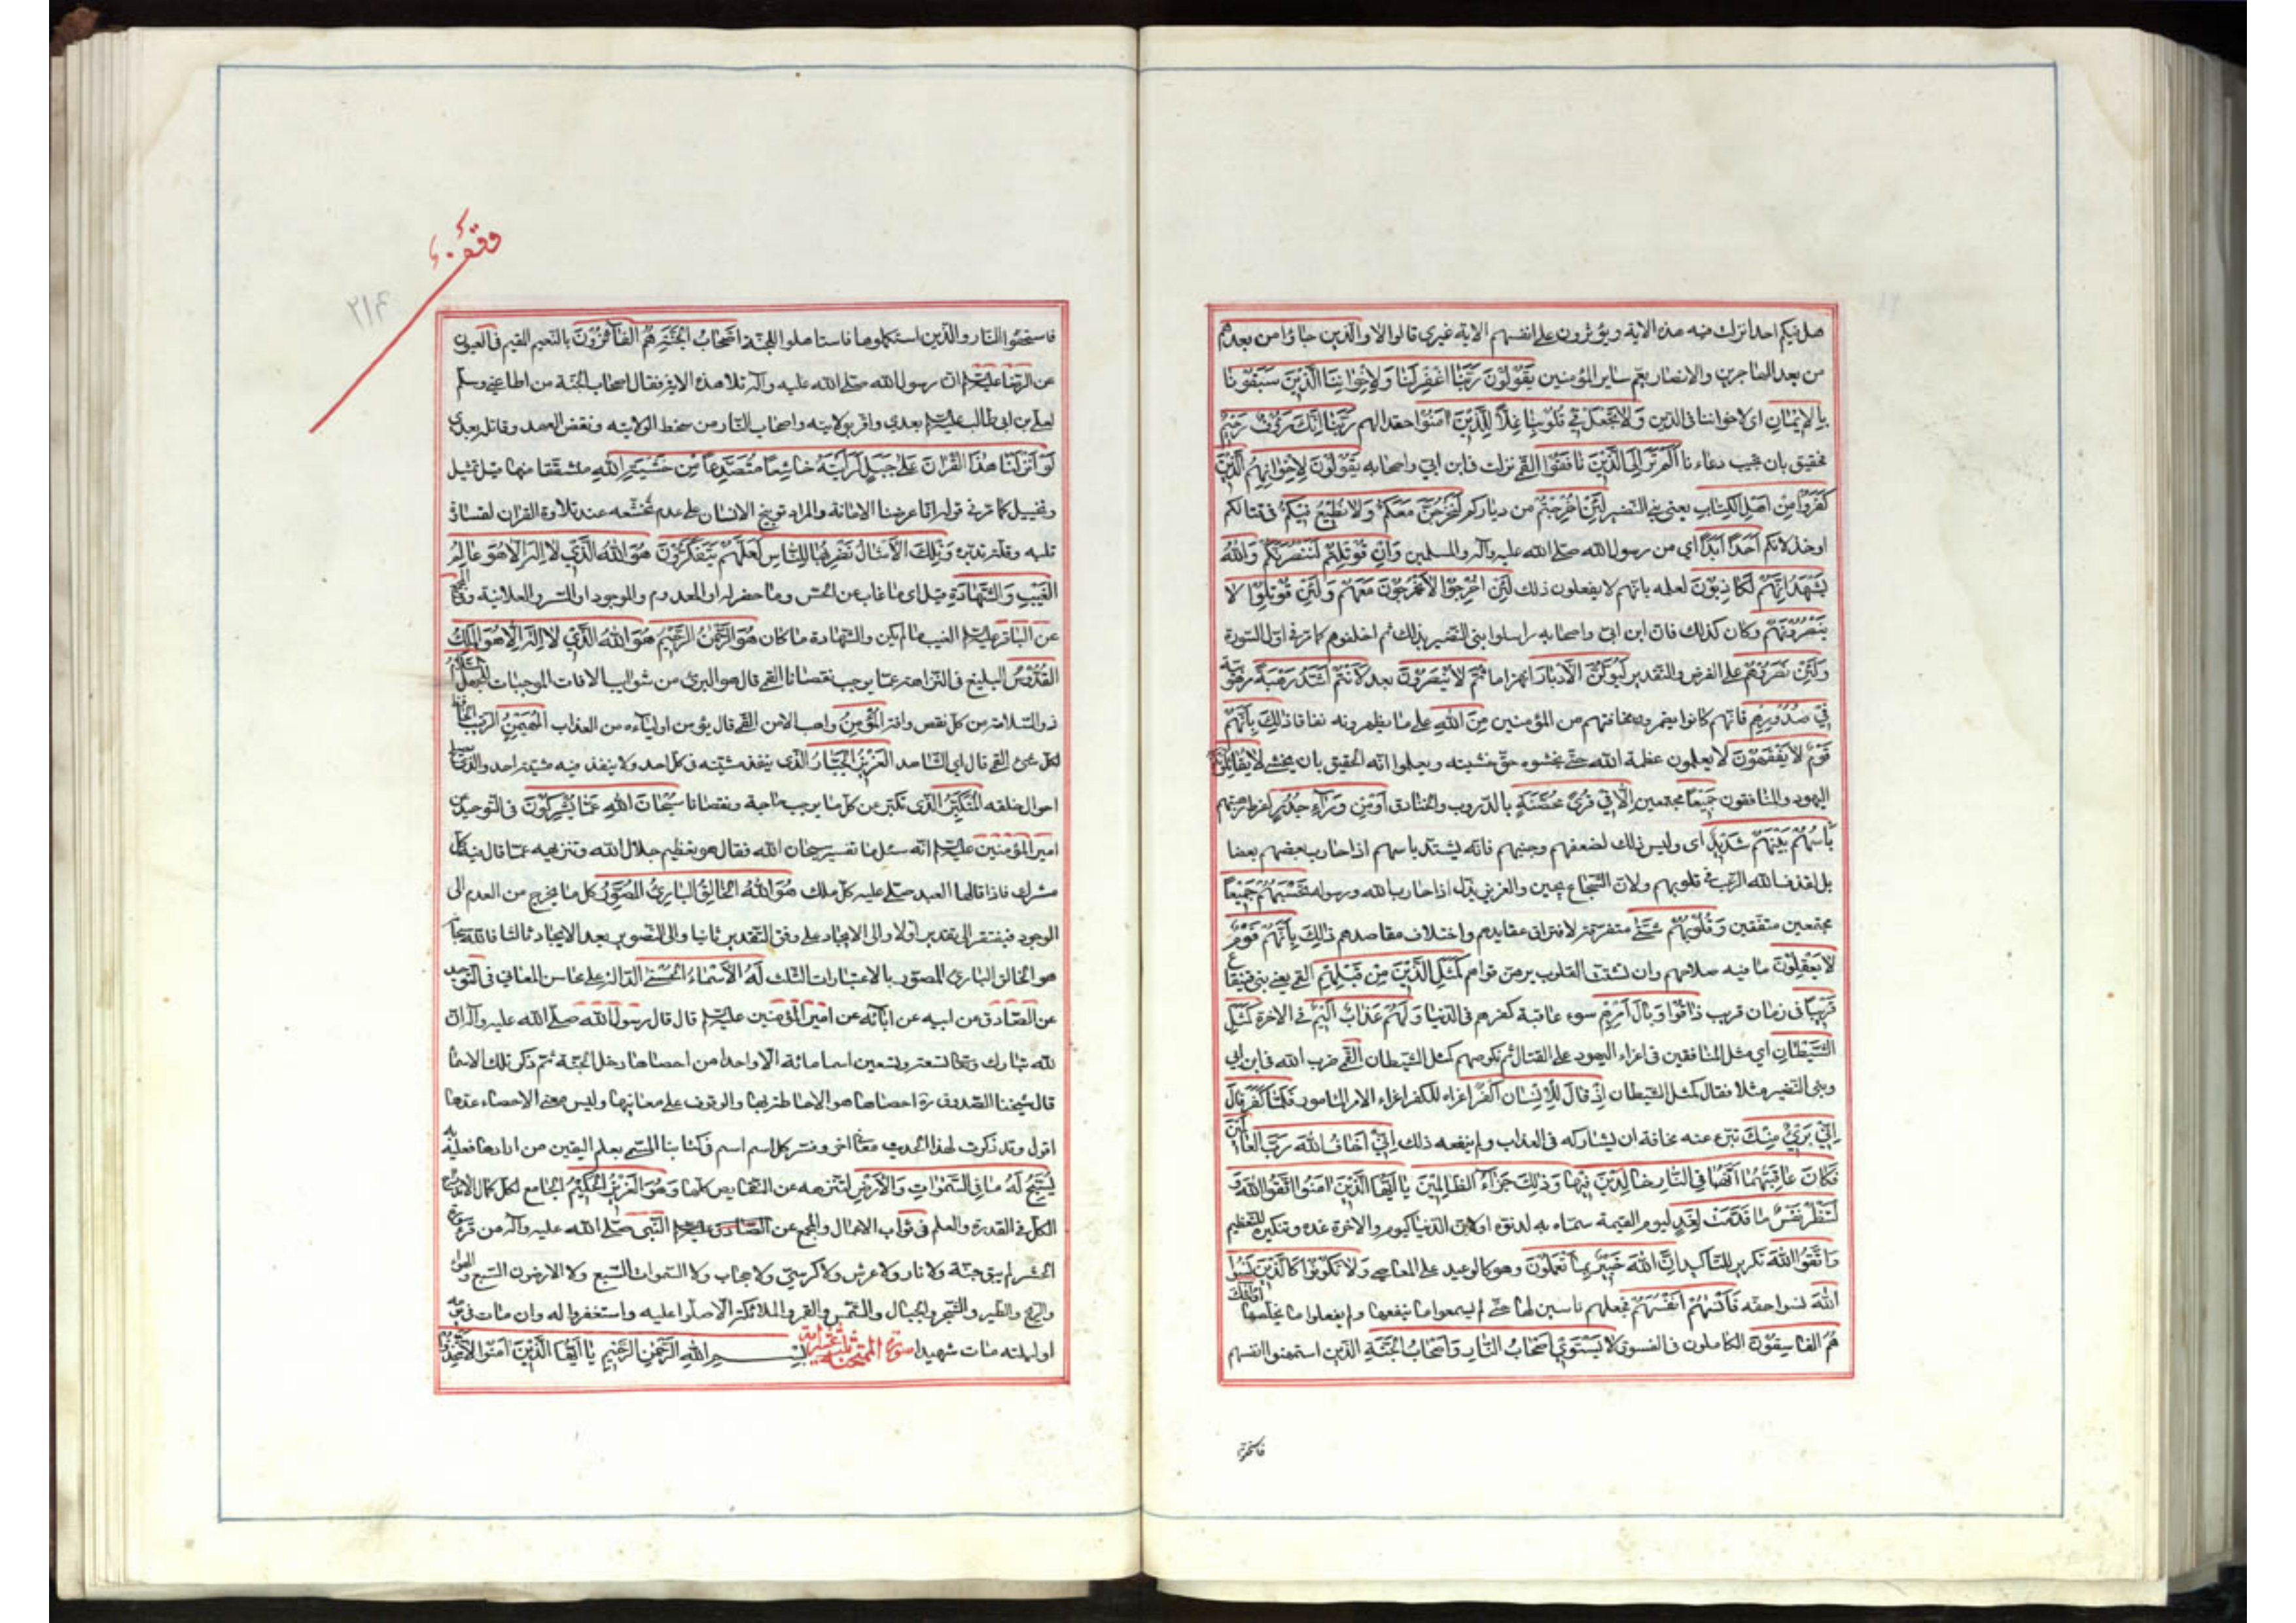 هل فيكم احد انزلت فيه هذه الاية ويؤثرون على انفسهم الاية غيري قالوا لا والذين جاؤا من بعدهم
من بعد المهاجرين والانصار يعم ساير المؤمنين يقولون ربنا اغفر لنا ولاخواننا الذين سبقونا
بالايمان اى لاخواننا فى الدين ولا تجعل في قلوبنا غلا للذين امنوا حقدا لهم ربنا انك رؤف رحيم
فحقيق بان تجيب دعاءنا الم تر الى الذين نافقوا القمي نزلت في ابن ابي واصحابه يقولون لاخوانهم الذين
كفروا من اهل الكتاب يعنى بني النضير لئن اخرجتم من دياركم لنخرجن معكم ولا نطيع فيكم فى قتالكم
اوخذلانكم احدا ابدا اي من رسول الله صلى الله عليه وآله والمسلمين وان قوتلتم لننصرنكم والله
يشهد انهم لكاذبون لعلمه بانهم لا يفعلون ذلك لئن اخرجوا لا يخرجون معهم ولئن قوتلوا لا
ينصرونهم وكان كذلك فان ابن ابي واصحابه راسلوا بنى النضير بذلك ثم اخلفوهم كما مر في اول السورة
ولئن نصروهم على الفرض والتقدير ليولن الادبار انهزاما ثم لا ينصرون بعد لانتم اشد رهبة مرهوبية
في صدورهم فانهم كانوا يضمرون مخافتهم من المؤمنين من الله على ما يظهرونه نفاقا ذلك بانهم
قوم لا يفقهون لا يعلمون عظمة الله حتى يخشوه حق خشيته ويعلموا انه الحقيق بان يخشى لا يقاتلونكم
اليهود والمنافقون جميعا مجتمعين الا في قرى محصنة بالدروب والخنادق او من وراء جدر لفرط رهبتهم
باسهم بينهم شديد اى وليس ذلك لضعفهم وجبنهم فانه يشتد باسهم اذا حارب بعضهم بعضا
بل لقذف الله الرعب في قلوبهم ولان الشجاع يجبن والعزيز يذل اذا حارب الله ورسوله تحسبهم جميعا
مجتمعين متفقين وقلوبهم شتى متفرقة لافتراق عقايدهم واختلاف مقاصدهم ذلك بانهم قوم
لا يعقلون ما فيه صلاحهم وان تشتت القلوب يوهن قواهم كمثل الذين من قبلهم القمي يعني بنى قينقاع
قريبا فى زمان قريب ذاقوا وبال امرهم سوء عاقبة كفرهم فى الدنيا ولهم عذاب اليم في الاخرة كمثل
الشيطان اي مثل المنافقين فى اغراء اليهود على القتال ثم نكوصهم كمثل الشيطان القمي ضرب الله في ابن ابي
وبنى النضير مثلا فقال كمثل الشيطان اذ قال للانسان اكفر اغراه للكفر اغراء الامر المامور فلما كفر قال
اني برئ منك تبرء عنه مخافة ان يشاركه فى العذاب ولم ينفعه ذلك انى اخاف الله رب العالمين
فكان عاقبتهما انهما فى النار خالدين فيها وذلك جزاء الظالمين يا ايها الذين امنوا اتقوا الله و
لتنظر نفس ما قدمت لغد ليوم القيمة سماه به لدنوه اولان الدنيا كيوم والاخرة غده وتنكيره للتعظيم
واتقوا الله تكرير للتاكيد ان الله خبير بما تعملون وهو كالوعيد على المعاصي ولا تكونوا كالذين نسوا
الله نسوا حقه فانسيهم انفسهم فجعلهم ناسين لها حتى لم يسمعوا ما ينفعها ولم يفعلوا ما يخلصها اولئك
هم الفاسقون الكاملون فى الفسوق لا يستوي اصحاب النار واصحاب الجنة الذين استمهنوا انفسهم
فاستحقوا
فاستحقوا النار والذين استكملوها فاستاهلوا الجنة اصحاب الجنة هم الفائزون بالنعيم المقيم فى العيون
عن الرضا عليه السلم ان رسول الله صلى الله عليه وآله تلا هذه الاية فقال اصحاب الجنة من اطاعني وسلم
لعلي بن ابى طالب عليه السلم بعدي واقر بولايته واصحاب النار من سخط الولايته ونقض العهد وقاتله بعدى
لو انزلنا هذا القران على جبل لرايته خاشعا متصدعا من خشية الله متشققا منها قيل تمثيل
وتخييل كما مر في قوله انا عرضنا الامانة والمراد توبيخ الانسان على عدم تخشعه عند تلاوة القران لقساوة
قلبه وقلة تدبره وتلك الامثال نضربها للناس لعلهم يتفكرون هو الله الذي لا اله الا هو عالم
الغيب والشهادة قيل اى ما غاب عن الحس وما حضر له او المعدوم والموجود او السر والعلانية وفى المجمع
عن الباقر عليه السلم الغيب ما لم يكن والشهادة ما كان هو الرحمن الرحيم هو الله الذي لا اله الا هو الملك
القدوس البليغ فى النزاهة عما يوجب نقصانا القمي قال هو البرئ من شوايب الافات الموجبات للجهل السلام
ذو السلامة من كل نقص وافة المؤمن واهب الامن القمي قال يؤمن اولياءه من العذاب المهيمن الرقيب الحافظ
لكل شئ القمي قال اي الشاهد العزيز الجبار الذى ينفذ مشيته في كل احد ولا ينفذ فيه مشية احد والذى يصلح
احوال خلقه المتكبر الذى تكبر عن كل ما يوجب حاجة ونقصانا سبحان الله عما يشركون فى التوحيد عن
امير المؤمنين عليه السلم انه سئل ما تفسير سبحان الله فقال هو تعظيم جلال الله وتنزيهه عما قال فيه كل
مشرك فاذا قالها العبد صلى عليه كل ملك هو الله الخالق البارئ المصور كل ما يخرج من العدم الى
الوجود فيفتقر الى تقدير اولا والى الايجاد على وفق التقدير ثانيا والى التصوير بعد الايجاد ثالثا فالله سبحانه
هو الخالق البارئ المصور بالاعتبارات الثلث له الاسماء الحسنى الدالة على محاسن المعاني فى التوحيد
عن الصادق عن ابيه عن ابائه عن امير المؤمنين عليه السلم قال قال رسول الله صلى الله عليه وآله ان
لله تبارك وتعالى تسعة وتسعين اسما مائة الا واحدا من احصاها دخل الجنة ثم ذكر تلك الاسما
قال شيخنا الصدوق ره احصاها هو الاحاطة بها والوقوف على معانيها وليس معنى الاحصاء عدها
اقول وقد ذكرت لهذا الحديث معنا اخر وفسر كل اسم اسم في كتابنا المسمى بعلم اليقين من ارادها فعليه به
يسبح له ما فى السموات والارض لتنزهه عن النقايص كلها وهو العزيز الحكيم الجامع لكل كمال
الكل في القدرة والعلم فى ثواب الاعمال والمجمع عن النبى صلى الله عليه وآله من قرء سورة
الحشر لم يبق جنة ولا نار ولا عرش ولا كرسي ولا حجاب ولا السموات السبع ولا الارضون السبع والهواء
والريح والطير والشجر والجبال والشمس والقمر والملائكة الا صلوا عليه واستغفروا له وان مات فى يومه
او ليلته مات شهيدا سورة الممتحنة ثلث عشر اية بسم الله الرحمن الرحيم يا ايها الذين امنوا لا تتخذوا